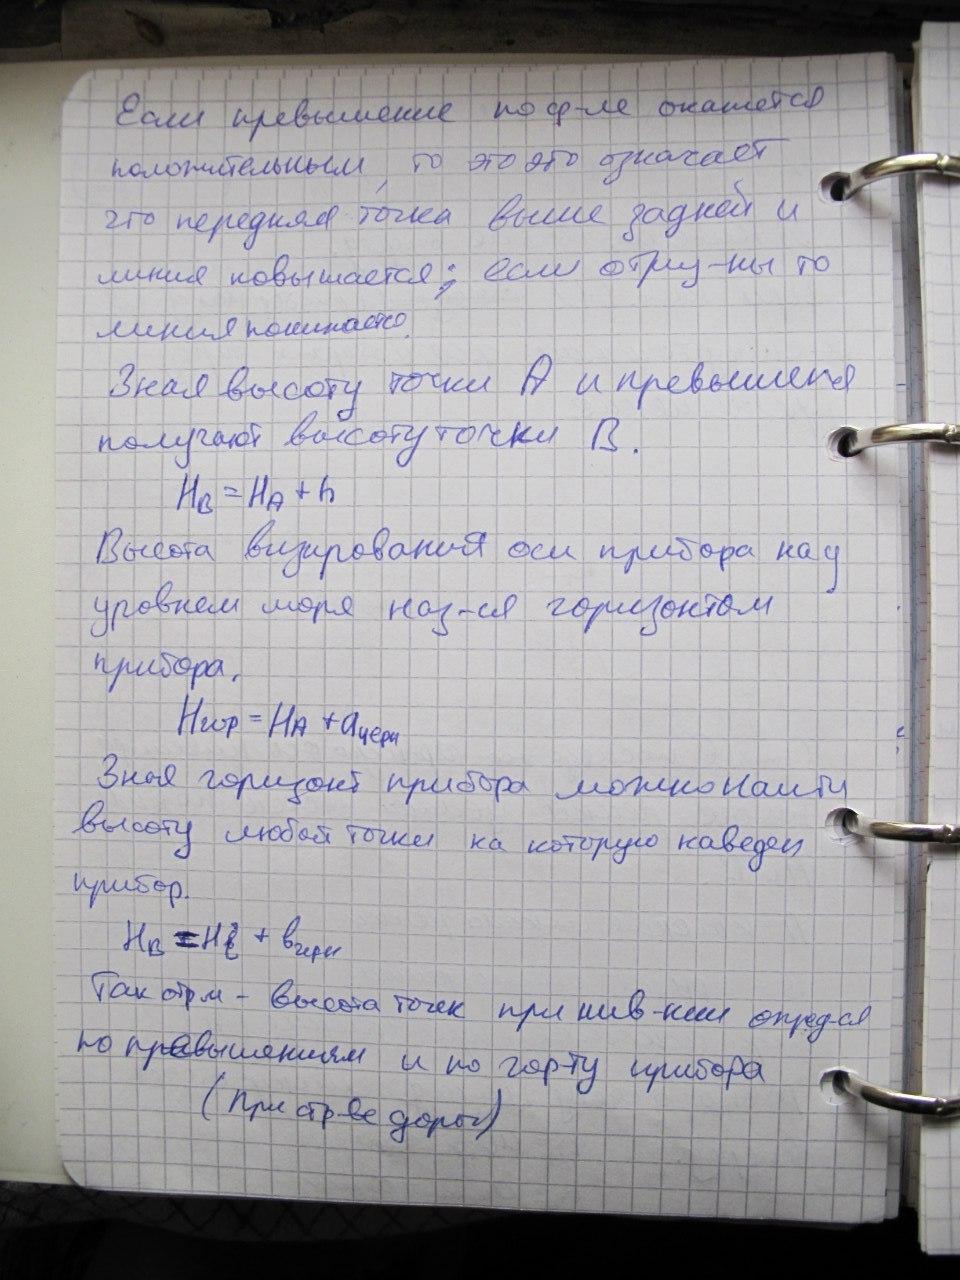 Если превышение по ф-ле окажется
положительным, то это это означает
что передняя точка выше задней и
линия повышается; если отриц-ны то
линия понижается.
Зная высоту точки А и превышения
получают высоту точки В.
HB = HA + h
Высота визирования оси прибора над
уровнем моря наз-ся горизонтом
прибора.
Hгор = HA + aчерн
Зная горизонт прибора можно найти
высоту любой точки на которую наведен
прибор.
HB = Hi + bчерн
Так отрм - высота точек при нив-нии опред-ся
по превышениям и по гор-ту прибора
(При стр-ве дорог)